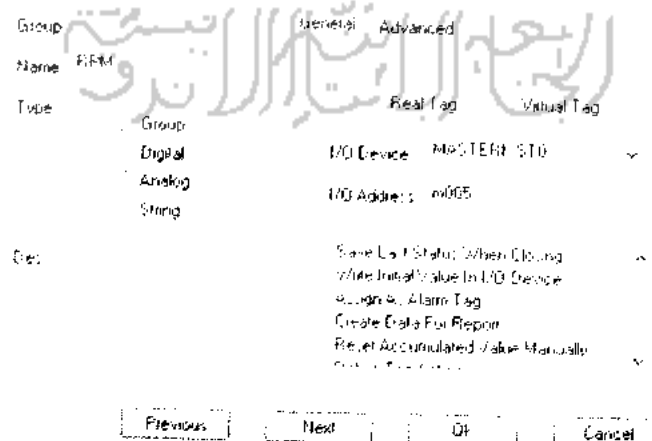 Group
General Advanced
Name RPM
Type
Real Tag Virtual Tag
Group
Digital
Analog
String
I/O Device
I/O Address m005
Des
Save Last Status When Closing
Write Initial Value In I/O Device
Assign As Alarm Tag
Create Data For Report
Reset Accumulated Value Manually
Previous Next OK Cancel